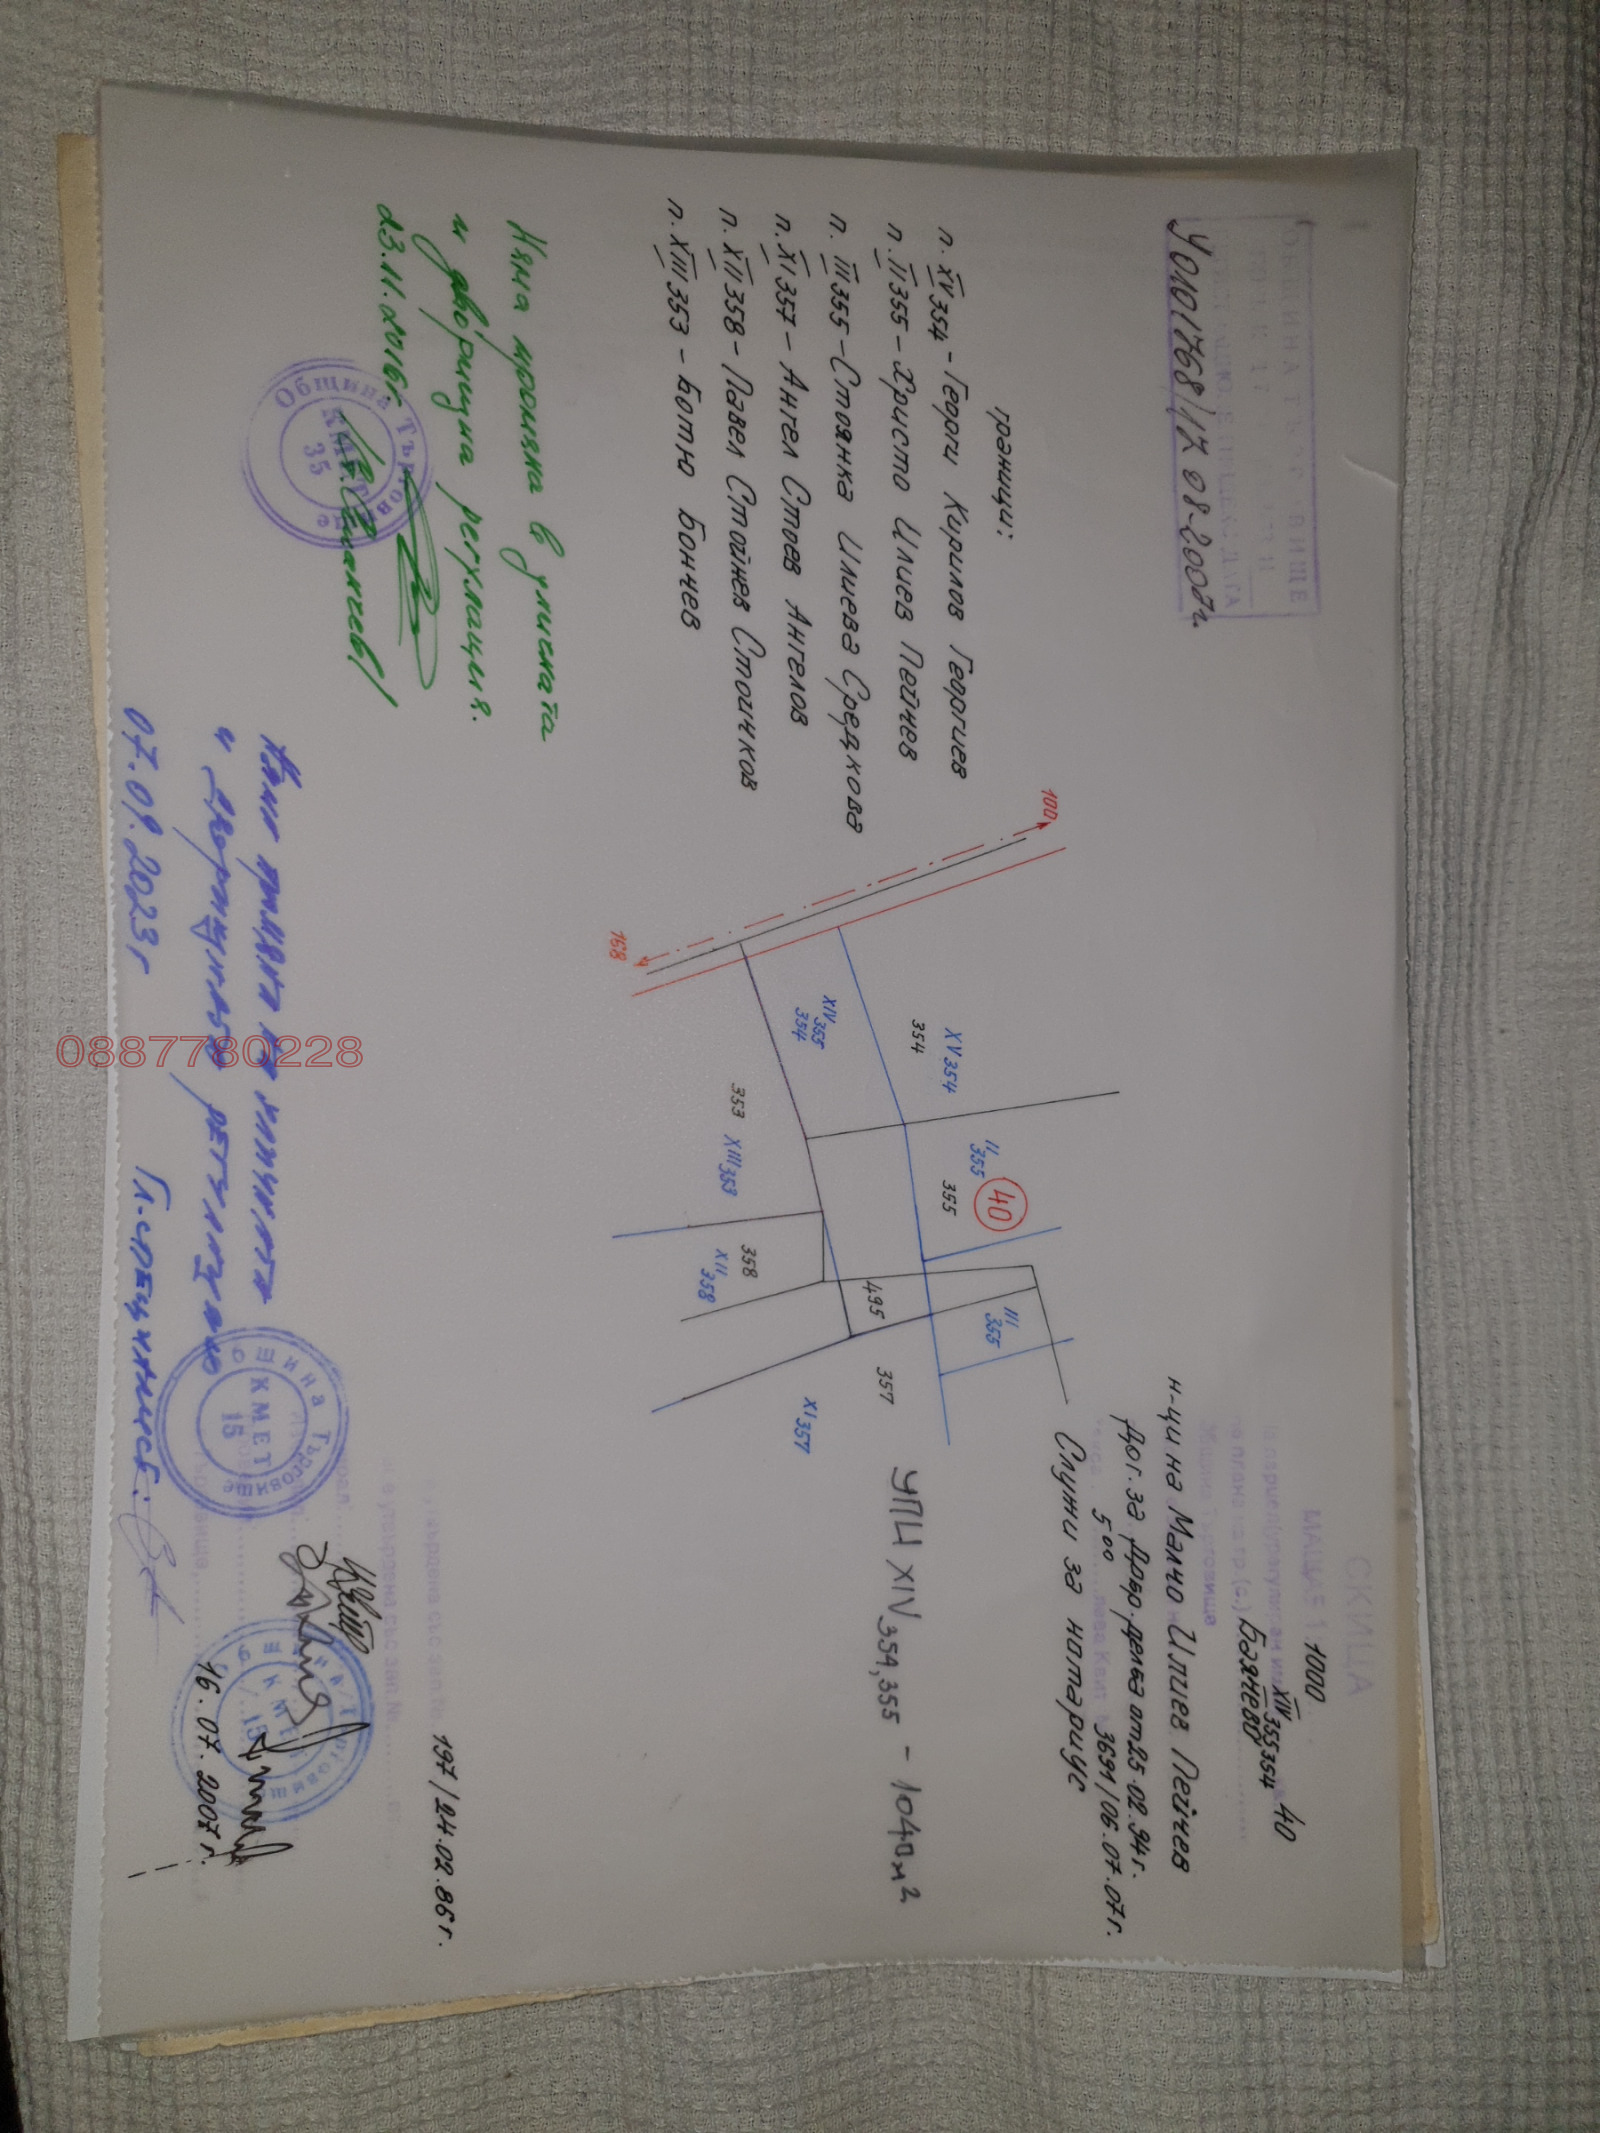 ОБЩИНА ТЪРГОВИЩЕ
УО101768/17.08.2007г.
СКИЦА
МАЩАБ 1: 1000
XIV 355 354 40
Божнево
н-ци на Малчо Илиев Пейчев
Дог. за добр. делба от 25.02.94г.
500 3691/06.07.07г.
Служи за нотариус
граници:
п. XV 354 - Георги Кирилов Георгиев
п. II 355 - Христо Илиев Пейчев
п. III 355 - Стоянка Илиева Средкова
п. XI 357 - Ангел Стоев Ангелов
п. XII 358 - Павел Стойчев Стоичков
п. XIII 353 - Ботю Бончев
100
168
XV 354
354
XIV 355
354
II 355
355
40
353 XIII 353
358
XII 358
495
III 355
357
XI 357
УПИ XIV 354, 355 - 1040 м²
Няма промяна в уличната
и дворищна регулация.
23.11.2016г.
Община Търговище
КМЕТ
35
Няма промяна на уличната
и дворищната регулация
07.09.2023г
Гл. специалист:
Община Търговище
КМЕТ
15
Община Търговище
КМЕТ
15
197/24.02.86г.
16.07.2007г.
0887780228